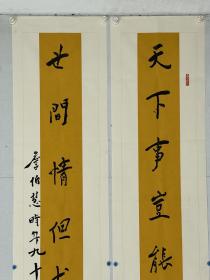 天下事豈能
世間情但
李伯慧時年九十